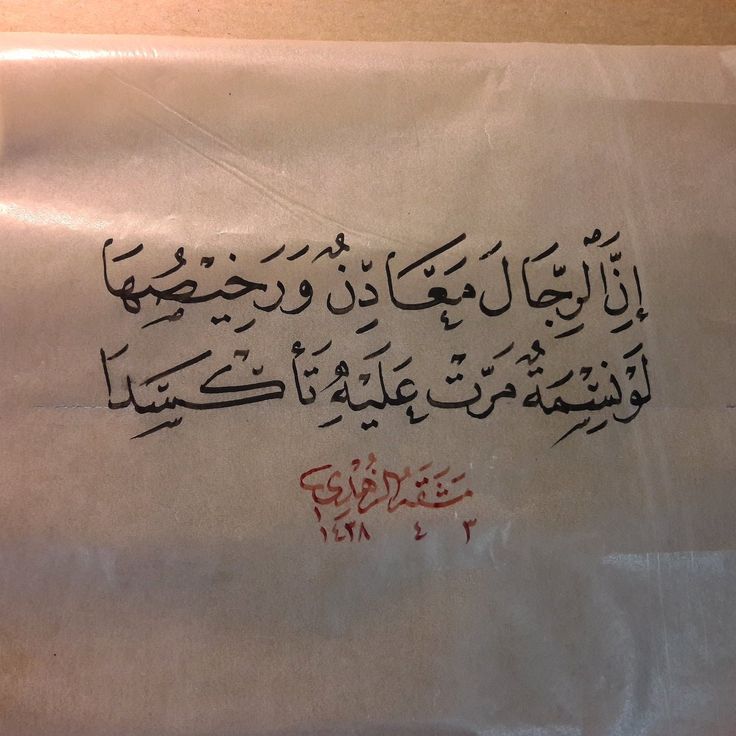 إِنَّ الرِّجَالَ مَعَادِنٌ وَرَخِيْصُهَا
لَوْ نَسْمَةٌ مَرَّتْ عَلَيْهِ تَأَكْسَدَا
مَشَقَهُ الزُّهْدِي
٣ ٤ ١٤٣٨